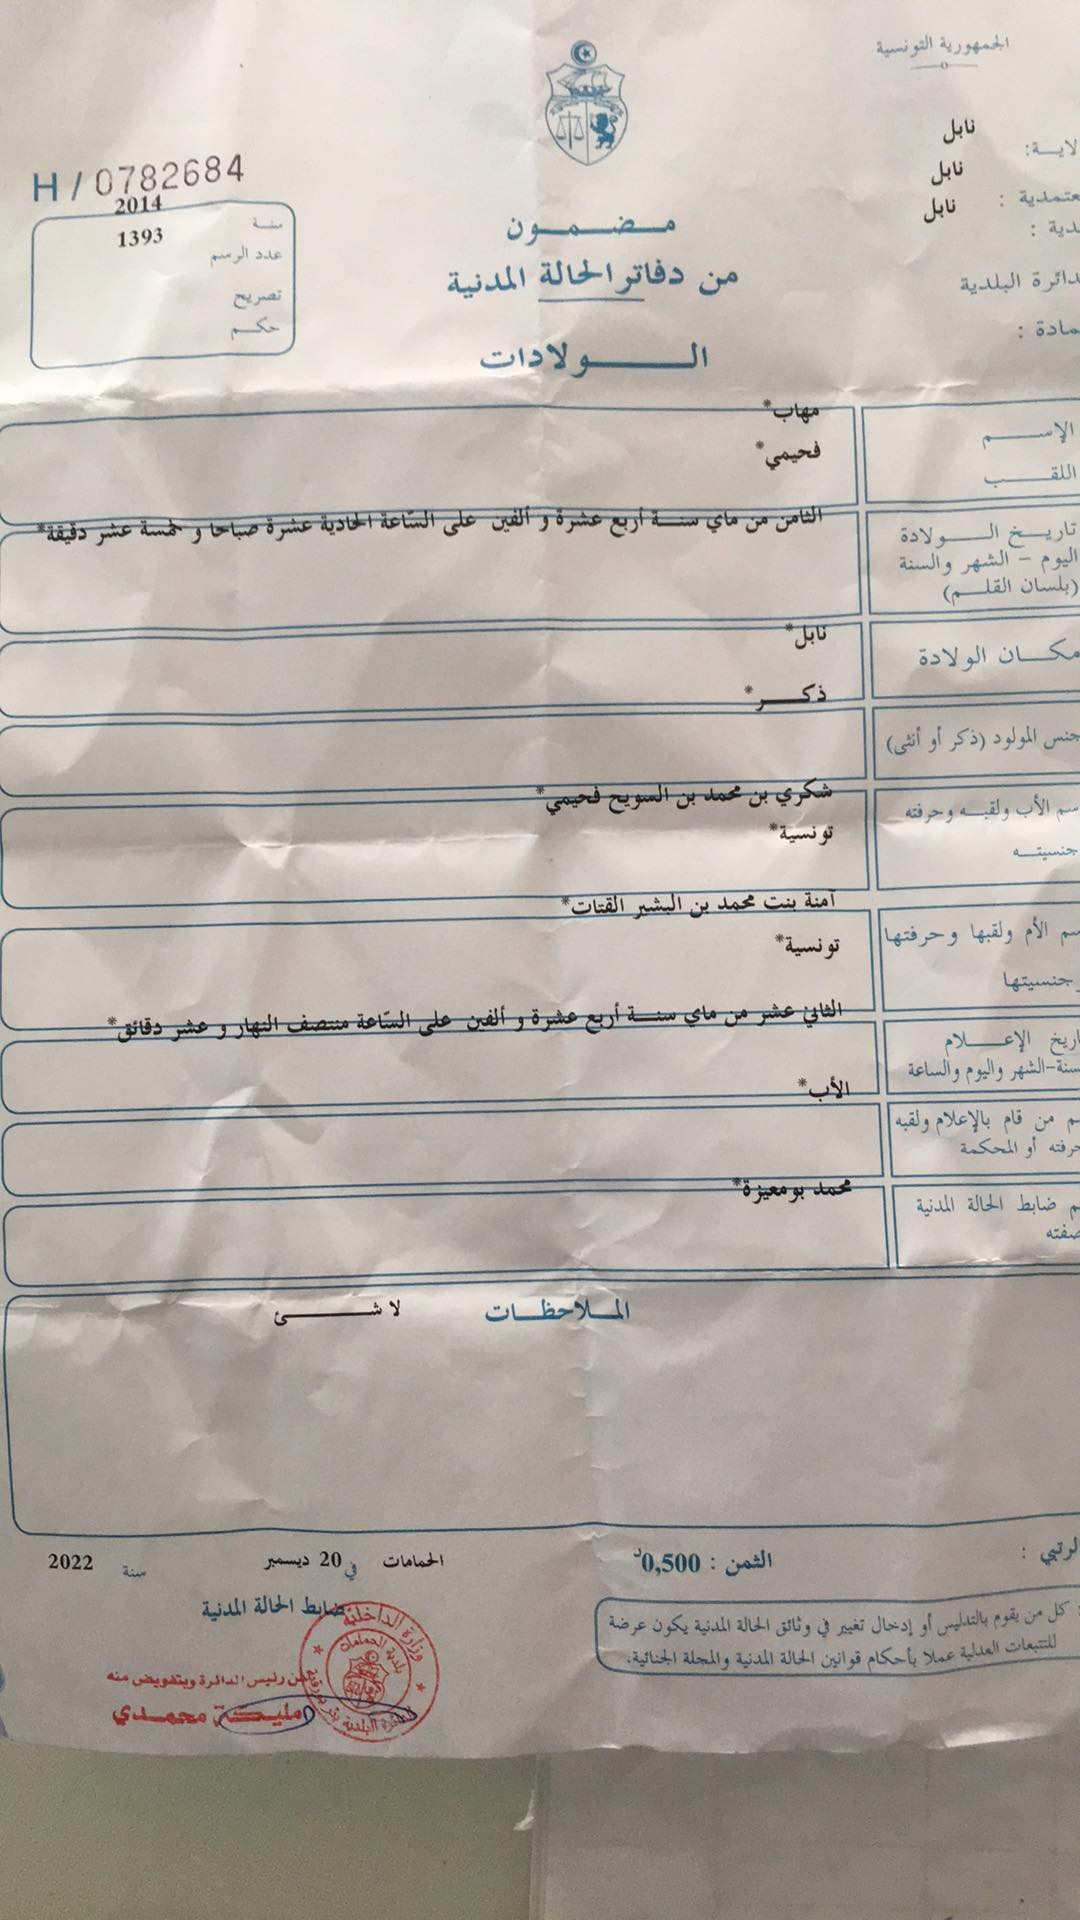 الجمهورية التونسية
لاية: نابل
عتمدية : نابل
دية : نابل
دائرة البلدية
مادة :
H / 0782684
سنة 2014
عدد الرسم 1393
تصريح
حكم
مضمون
من دفاتر الحالة المدنية
الولادات
الإسم مهاب*
اللقب فحيمي*
تاريخ الولادة الثامن من ماي سنة أربع عشرة و ألفين على السّاعة الحادية عشرة صباحا و خمسة عشر دقيقة*
اليوم - الشهر والسنة
(بلسان القلم)
مكان الولادة نابل*
جنس المولود (ذكر أو أنثى) ذكر*
سم الأب ولقبه وحرفته شكري بن محمد بن السويح فحيمي*
جنسيته تونسية*
سم الأم ولقبها وحرفتها آمنة بنت محمد بن البشير القتات*
وجنسيتها تونسية*
اريخ الإعلام الثاني عشر من ماي سنة أربع عشرة و ألفين على السّاعة منتصف النهار و عشر دقائق*
سنة-الشهر واليوم والساعة
م من قام بالإعلام ولقبه الأب*
حرفته أو المحكمة
م ضابط الحالة المدنية محمد بومعيزة*
صفته
الملاحظات لا شئ
الحمامات في 20 ديسمبر سنة 2022
ضابط الحالة المدنية
الثمن : 0,500د
لرتبي :
كل من يقوم بالتدليس أو إدخال تغيير في وثائق الحالة المدنية يكون عرضة
للتتبعات العدلية عملا بأحكام قوانين الحالة المدنية والمجلة الجنائية.
وزارة الداخلية
بلدية الحمامات
عن رئيس الدائرة وبتفويض منه
مليكة محمدي